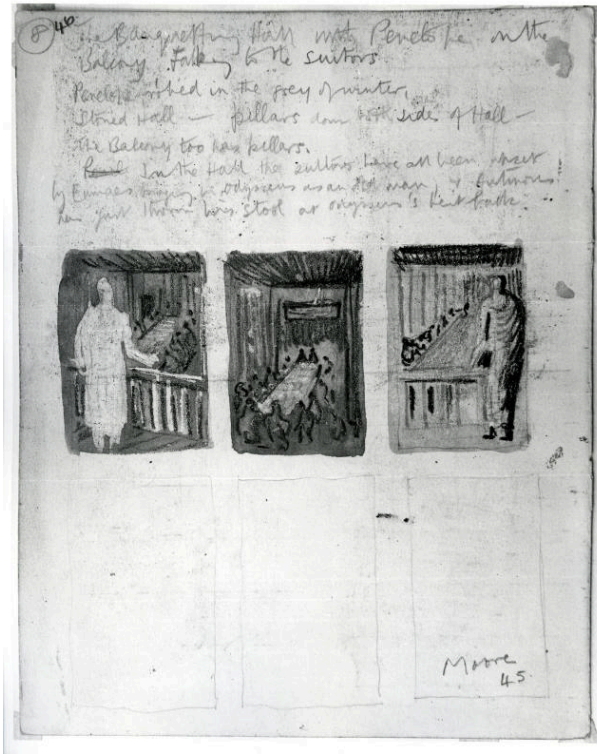 8 46
The Banquetting Hall with Penelope on the
Balcony Talking to the suitors
Penelope robed in the grey of winter,
Stoned Hall — pillars down both sides of Hall —
The Balcony too has pillars.
In the Hall the suitors have all been upset
by Eumaeus bringing in Odysseus as an old man, & Antinous
has just thrown his stool at Odysseus's bent back.
Moore
45